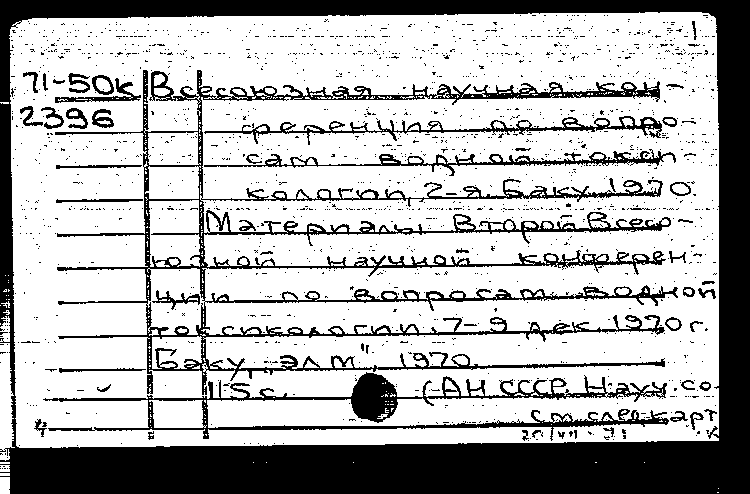 1
71-50к Всесоюзная научная кон-
2396 ференция по вопро-
сам водной токси-
кологии, 2-я. Баку. 1970.
Материалы Второй Всесо-
юзной научной конферен-
ции по вопросам водной
токсикологии. 7-9 дек. 1970 г.
Баку, "Элм", 1970.
115 с. (АН СССР. Науч. со-
4 см. след. карт
20/VII-71 К